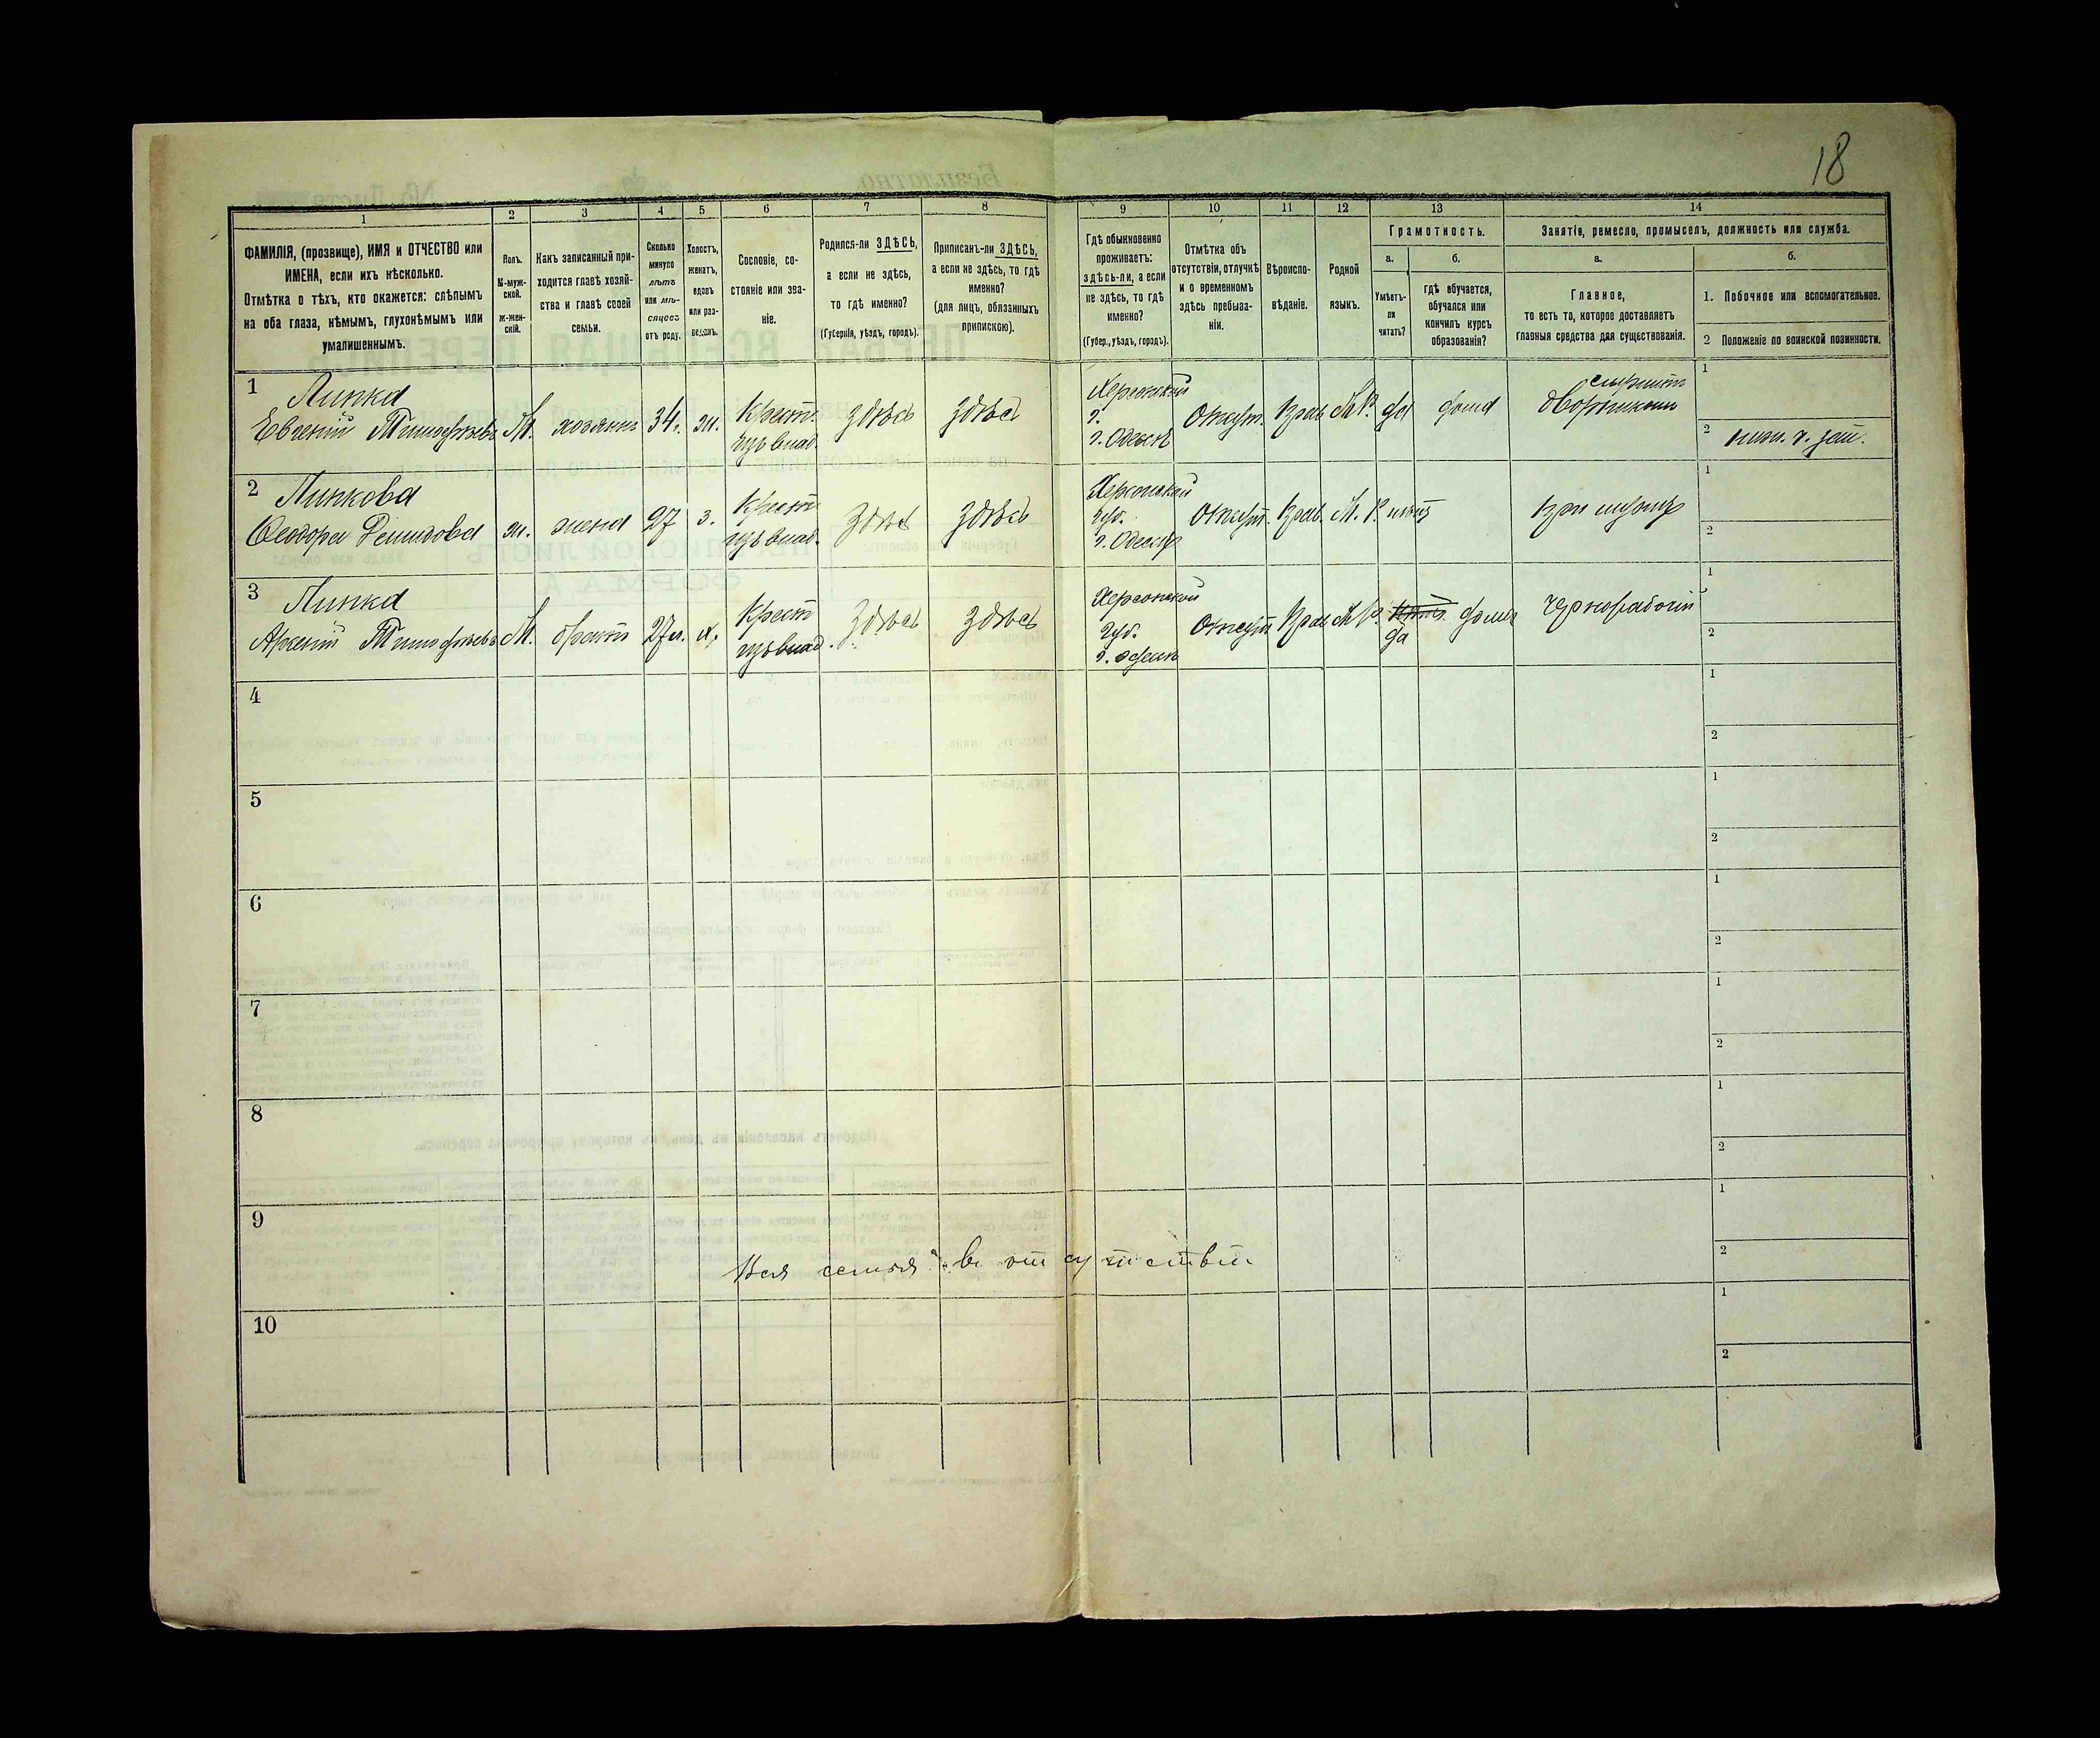 18
1 2 3 4 5 6 7 8 9 10 11 12 13 14
ФАМИЛІЯ, (прозвище), ИМЯ и ОТЧЕСТВО или
ИМЕНА, если ихъ нѣсколько.
Отмѣтка о тѣхъ, кто окажется: слѣпымъ
на оба глаза, нѣмымъ, глухонѣмымъ или
умалишеннымъ.
Полъ.
М-муж-
ской.
ж-жен-
скій.
Какъ записанный при-
ходится главѣ хозяй-
ства и главѣ своей
семьи.
Сколько
минуло
лѣтъ
или мѣ-
сяцевъ
отъ роду.
Холостъ,
женатъ,
вдовъ
или раз-
веденъ.
Сословіе, со-
стояніе или зва-
ніе.
Родился-ли ЗДѢСЬ,
а если не здѣсь,
то гдѣ именно?
(Губернія, уѣздъ, городъ).
Приписанъ-ли ЗДѢСЬ,
а если не здѣсь, то гдѣ
именно?
(для лицъ, обязанныхъ
припискою).
Гдѣ обыкновенно
проживаетъ:
здѣсь-ли, а если
не здѣсь, то гдѣ
именно?
(Губер., уѣздъ, городъ).
Отмѣтка объ
отсутствіи, отлучкѣ
и о временномъ
здѣсь пребыва-
ніи.
Вѣроиспо-
вѣданіе.
Родной
языкъ.
Грамотность.
а.
Умѣетъ-
ли
читать?
б.
гдѣ обучается,
обучался или
кончилъ курсъ
образованія?
Занятія, ремесло, промыселъ, должность или служба.
а.
Главное,
то есть то, которое доставляетъ
главныя средства для существованія.
б.
1. Побочное или вспомогательное.
2 Положеніе по воинской повинности.
1 Липка
Евгеній Тимофѣевъ М. хозяинъ 34. ж. Крест. здѣсь здѣсь
изъ влад.
Херсонской
г.
г. Одессѣ
Отсут. Прав М.Р. да дома
дворникомъ
1
2
2 Липкова
Феодора Демидова ж. жена 27 з. Крест здѣсь здѣсь
изъ влад.
Херсонской
губ.
г. Одессѣ
Отсут. Прав. М. Р. нѣтъ при мужѣ
1
2
3 Липка
Арсеній Тимофѣевъ М. братъ 27 л. х. Крест здѣсь здѣсь
изъ влад.
Херсонской
губ.
г. Одессѣ
Отсут. Прав М.Р. нѣтъ да дома Чернорабочій
1
2
4 1
2
5 1
2
6 1
2
7 1
2
8 1
2
9 1
2
Вся семья въ отсутствіи
10 1
2